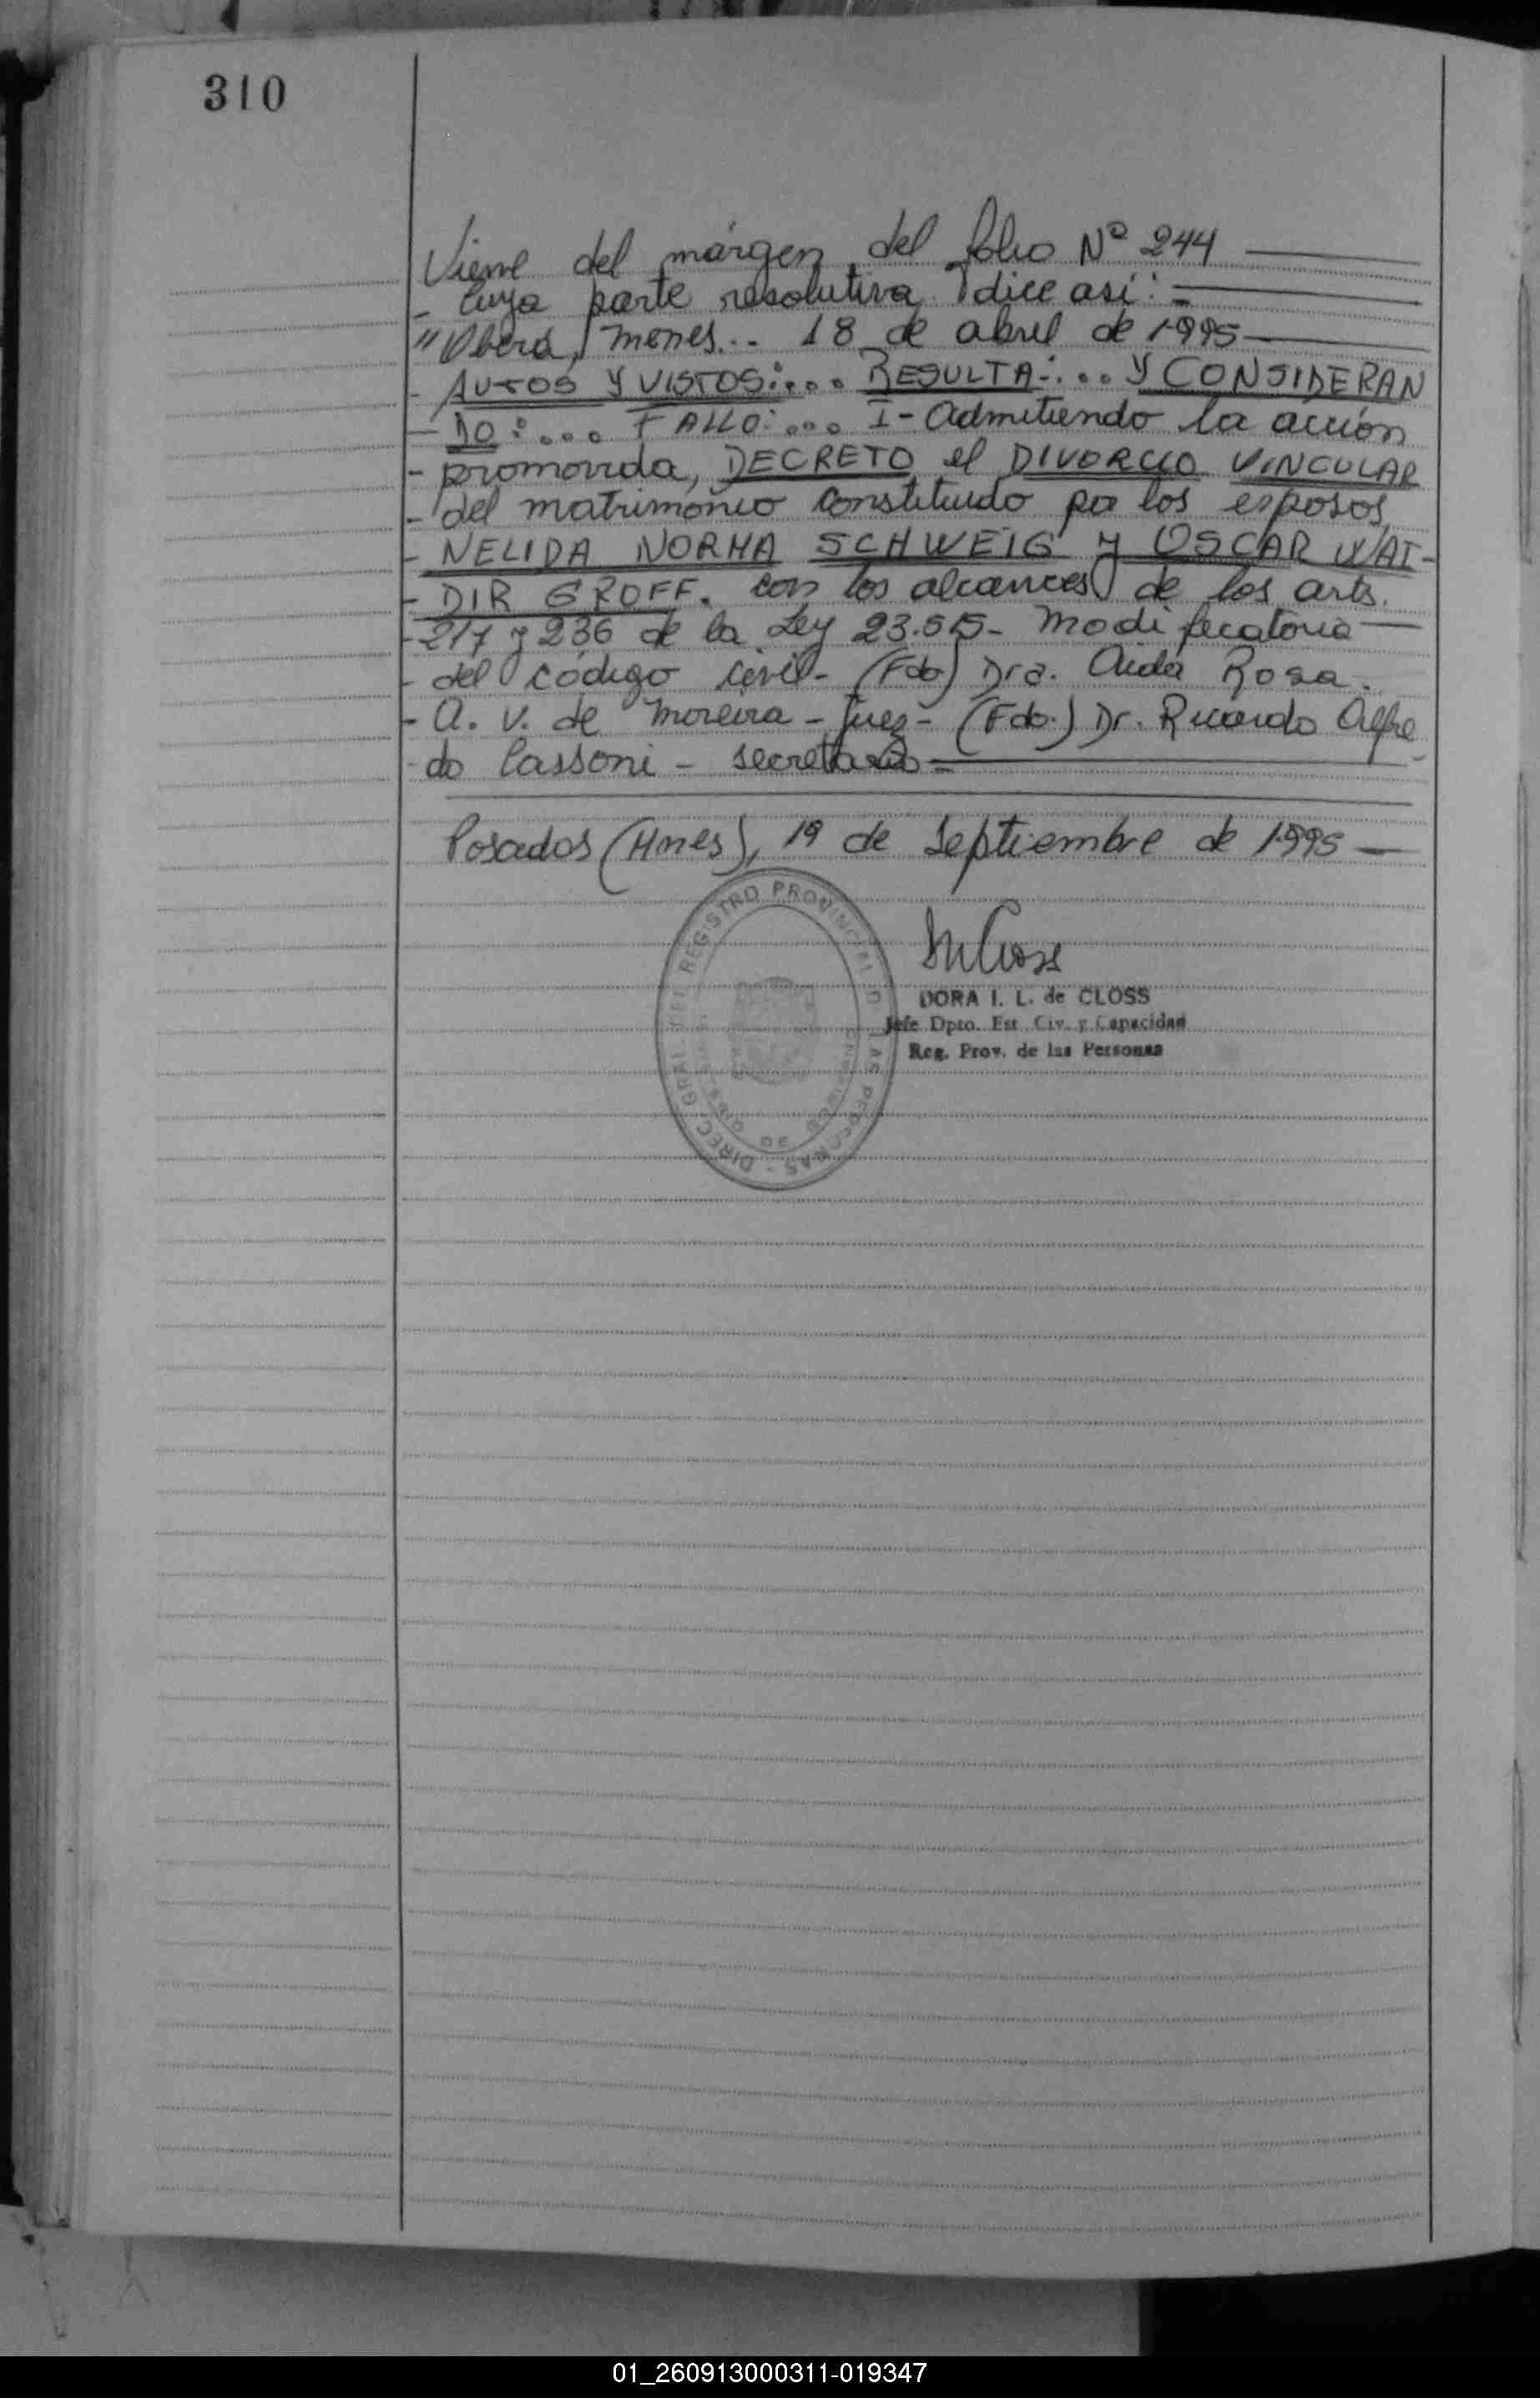 310
Viene del márgen del folio Nº 244
- cuya parte resolutiva dice así: -
"Oberá, Mnes... 18 de abril de 1.995
- AUTOS Y VISTOS:... RESULTA:... Y CONSIDERAN
- DO:... FALLO:... I- Admitiendo la acción
- promovida, DECRETO el DIVORCIO VINCULAR
- del matrimonio constituido por los esposos
- NELIDA NORMA SCHWEIG y OSCAR WAL-
- DIR GROFF. con los alcances de los arts.
- 217 y 236 de la Ley 23.515- Modificatoria
- del código civil- (Fdo) Dra. Aida Rosa
- A. V. de Moreira - Juez - (Fdo.) Dr. Ricardo Alfre
- do Cassoni - secretario -
Posadas (Mnes), 19 de Septiembre de 1.995
DORA I. L. de CLOSS
Jefe Dpto. Est. Civ. y Capacidad
Reg. Prov. de las Personas
DIREC. GRAL. DEL REGISTRO PROVINCIAL DE LAS PERSONAS -
01_260913000311-019347